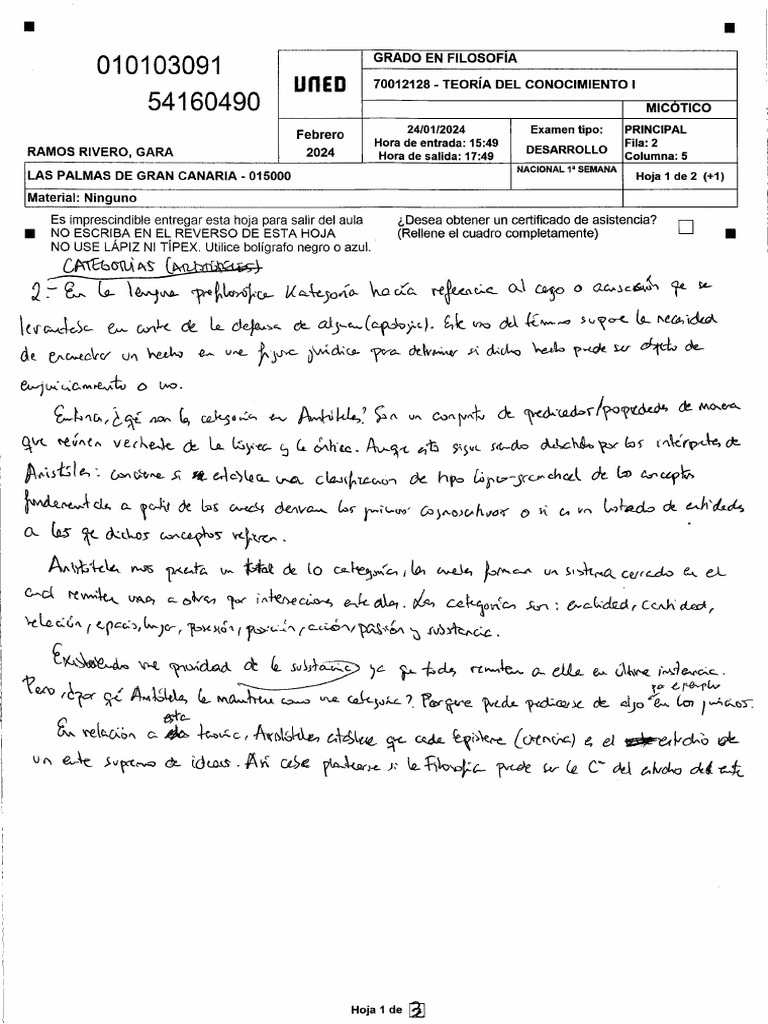 010103091
54160490
RAMOS RIVERO, GARA
UNED
GRADO EN FILOSOFÍA
70012128 - TEORÍA DEL CONOCIMIENTO I
MICÓTICO
Febrero
2024
24/01/2024
Hora de entrada: 15:49
Hora de salida: 17:49
Examen tipo:
DESARROLLO
PRINCIPAL
Fila: 2
Columna: 5
LAS PALMAS DE GRAN CANARIA - 015000
NACIONAL 1ª SEMANA
Hoja 1 de 2 (+1)
Material: Ninguno
Es imprescindible entregar esta hoja para salir del aula
NO ESCRIBA EN EL REVERSO DE ESTA HOJA
NO USE LÁPIZ NI TÍPEX. Utilice bolígrafo negro o azul.
¿Desea obtener un certificado de asistencia?
(Rellene el cuadro completamente)
CATEGORÍAS (ARISTÓTELES)
2.- En la lengua prefilosófica Kategoría hacía referencia al cargo o acusación que se
levantaba en contra de la defensa de alguien (apología). Este uso del término supone la necesidad
de encuadrar un hecho en una figura jurídica para determinar si dicho hecho puede ser objeto de
enjuiciamiento o no.
Entonces, ¿qué son las categorías en Aristóteles? Son un conjunto de predicados/propiedades de manera
que reúnen vertiente de la lógica y la óntica. Aunque esto sigue siendo debatido por los intérpretes de
Aristóteles: conviene si establece una clasificación de tipo lógico-gramatical de los conceptos
fundamentales a partir de los cuales derivan los juicios cognoscitivos o si es un listado de entidades
a las que dichos conceptos refieren.
Aristóteles nos presenta un total de 10 categorías, las cuales forman un sistema cerrado en el
cual remiten unas a otras por intersecciones entre ellas. Las categorías son: cualidad, cantidad,
relación, espacio, lugar, posesión, posición, acción, pasión y substancia.
Existiendo una prioridad de la substancia ya que todas remiten a ella en última instancia.
Pero ¿por qué Aristóteles la mantiene como una categoría? Porque puede predicarse de algo por ejemplo en los juicios.
En relación a esta teoría, Aristóteles establece que cada Episteme (ciencia) es el estudio de
un ente supremo de ideas. Así cabe plantearse si la Filosofía puede ser la Cª del estudio del ente
Hoja 1 de 3